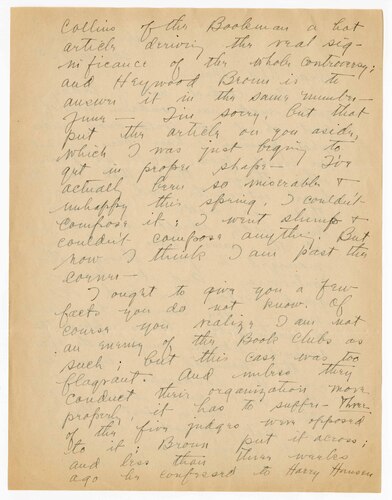 Collins of the Bookman a hot
article deriving the real sig-
nificance of the whole controversy;
and Heywood Broun is to
answer it in the same number -
June - I'm sorry, but that
put the article on you aside,
which I was just beging to
get in proper shape - I've
actually been so miserable &
unhappy this spring, I couldn't
compose it; I went stump &
couldn't compose anythg. But
now I think I am past the
corner -
I ought to give you a few
facts you do not know. Of
course you realize I am not
an enemy of the Book Clubs as
such; but this case was too
flagrant. And unless they
conduct their organization more
properly, it has to suffer - Three
of the five judges were opposed
to it; Broun put it across;
and less than three weeks
ago he confessed to Harry Hansen